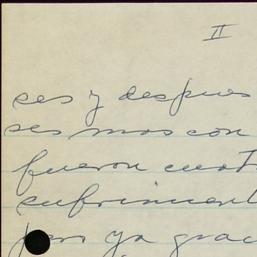 II
ses y despues
ses mas con
fueron cuat
sufrimient
pero ya grac